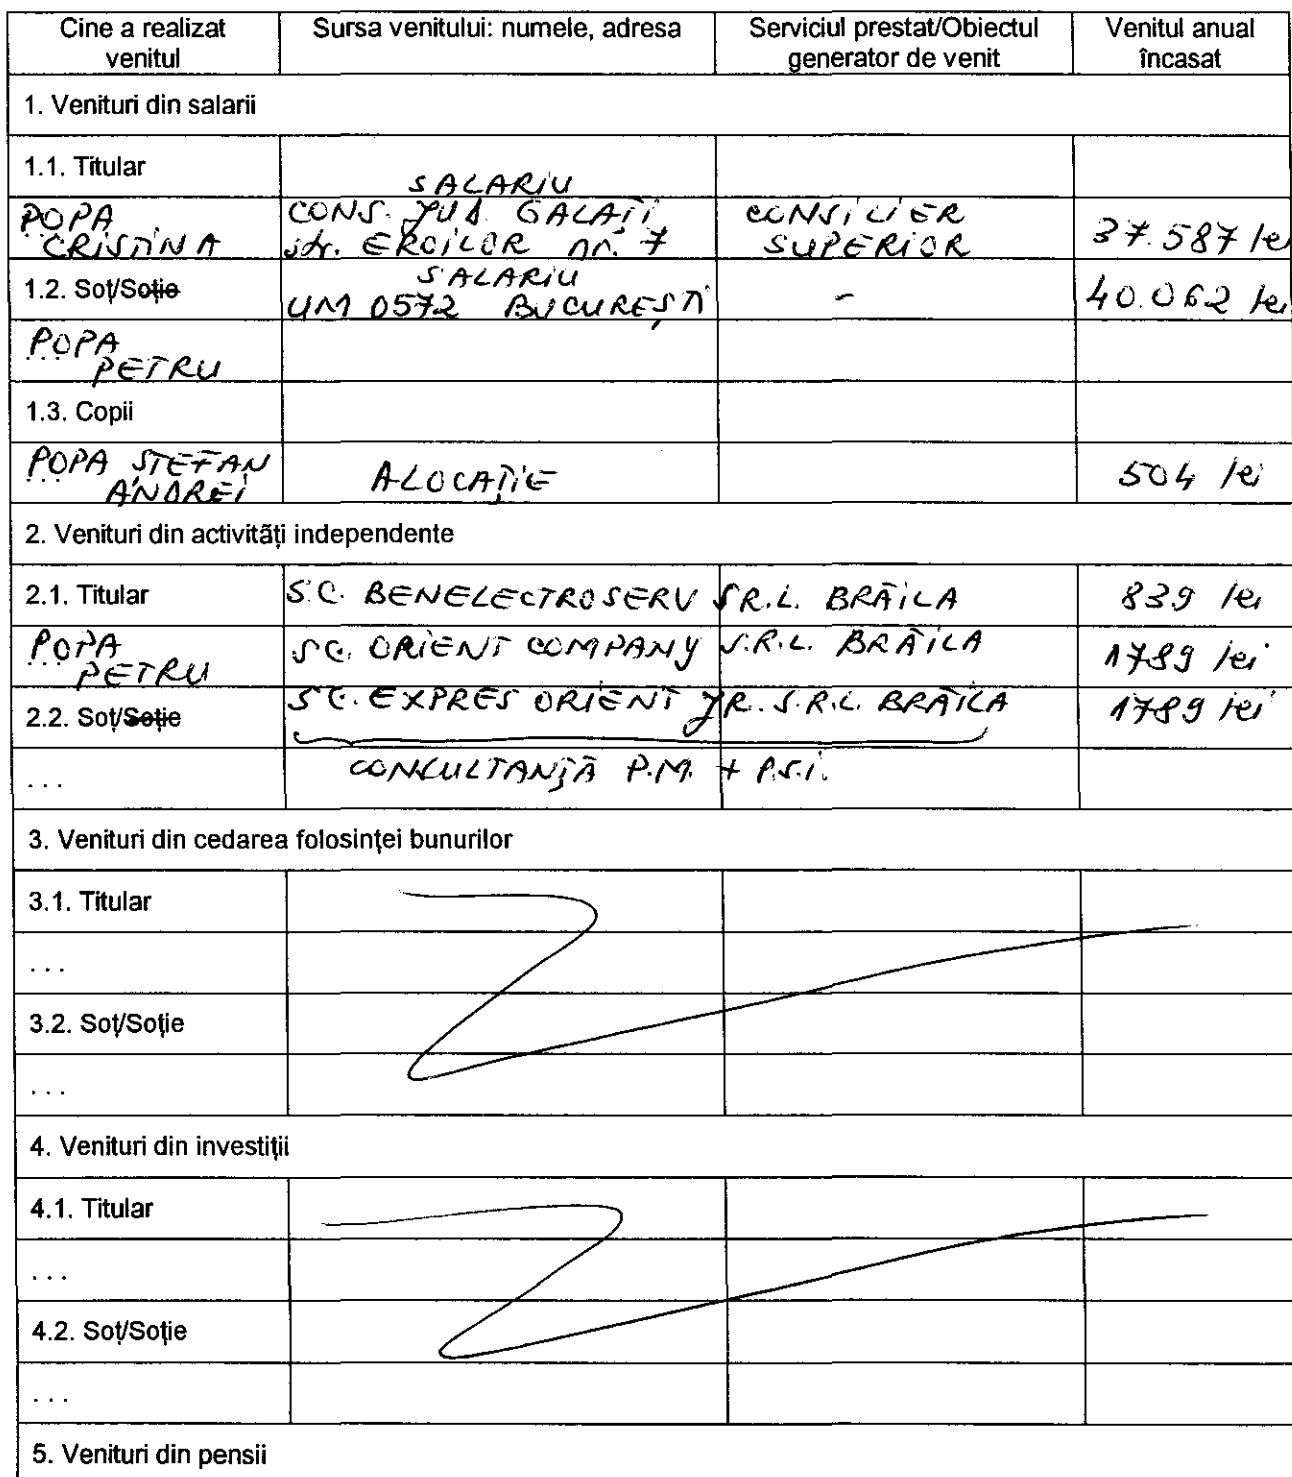 Cine a realizat venitul | Sursa venitului: numele, adresa | Serviciul prestat/Obiectul generator de venit | Venitul anual încasat
1. Venituri din salarii
1.1. Titular | SALARIU
POPA CRISTINA | CONS. JUD. GALAȚI str. EROILOR nr. 7 | CONSILIER SUPERIOR | 37.587 lei
1.2. Soț/Soție | SALARIU UM 0572 BUCUREȘTI | - | 40.062 lei
... POPA PETRU
1.3. Copii
... POPA ȘTEFAN ANDREI | ALOCAȚIE | 504 lei
2. Venituri din activități independente
2.1. Titular | S.C. BENELECTROSERV S.R.L. BRĂILA | 839 lei
... POPA PETRU | SC. ORIENT COMPANY S.R.L. BRĂILA | 1789 lei
2.2. Soț/Soție | SC. EXPRES ORIENT JR. S.R.L. BRĂILA | 1789 lei
... | CONCULTANȚĂ P.M. + P.S.I.
3. Venituri din cedarea folosinței bunurilor
3.1. Titular
...
3.2. Soț/Soție
...
4. Venituri din investiții
4.1. Titular
...
4.2. Soț/Soție
...
5. Venituri din pensii